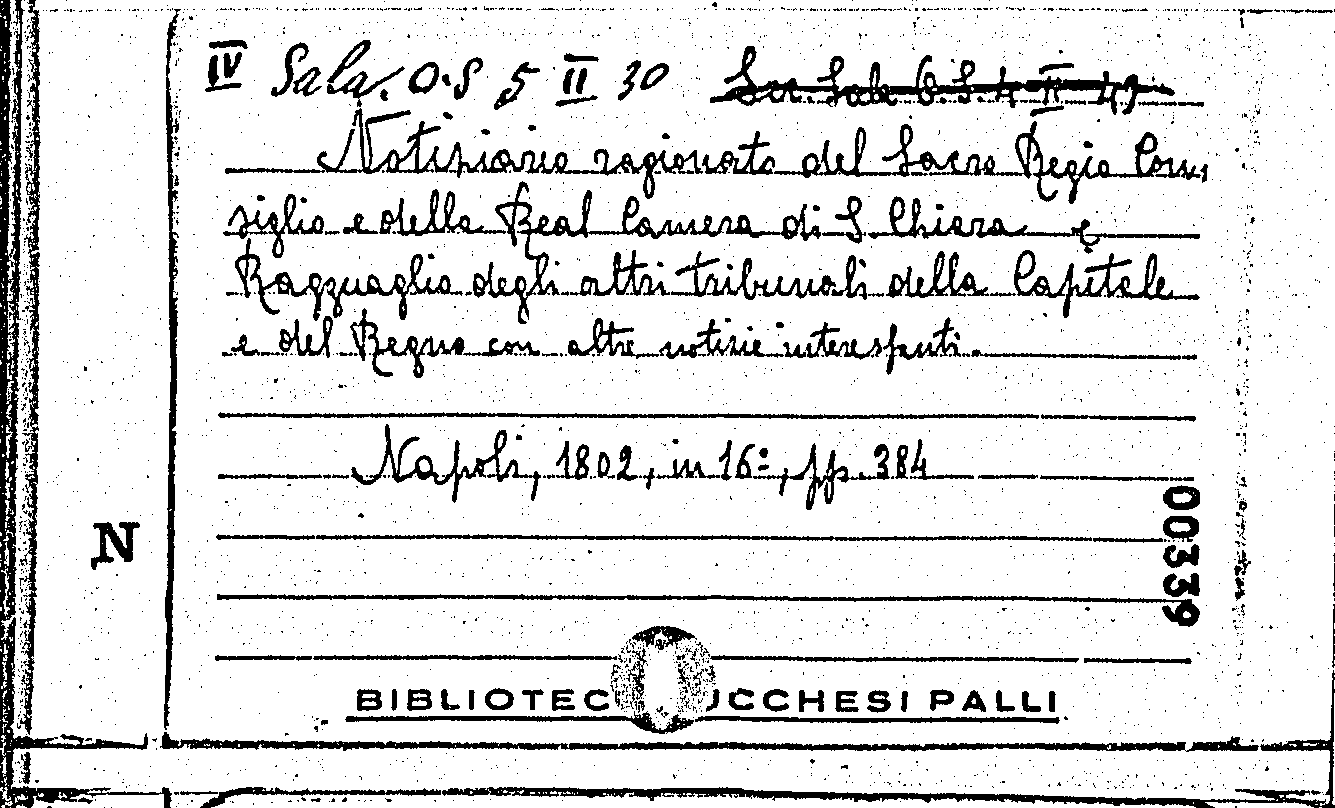 IV Sala. O.S 5 II 30 Sala O.S. 4 II 49
Notiziario ragionato del Sacro Regio Con-
siglio e della Real Camera di S. Chiara e
Ragguaglio degli altri tribunali della Capitale
e del Regno con altre notizie interessanti.
Napoli, 1802, in 16º, pp. 384
N
00339
BIBLIOTEC UCCHESI PALLI